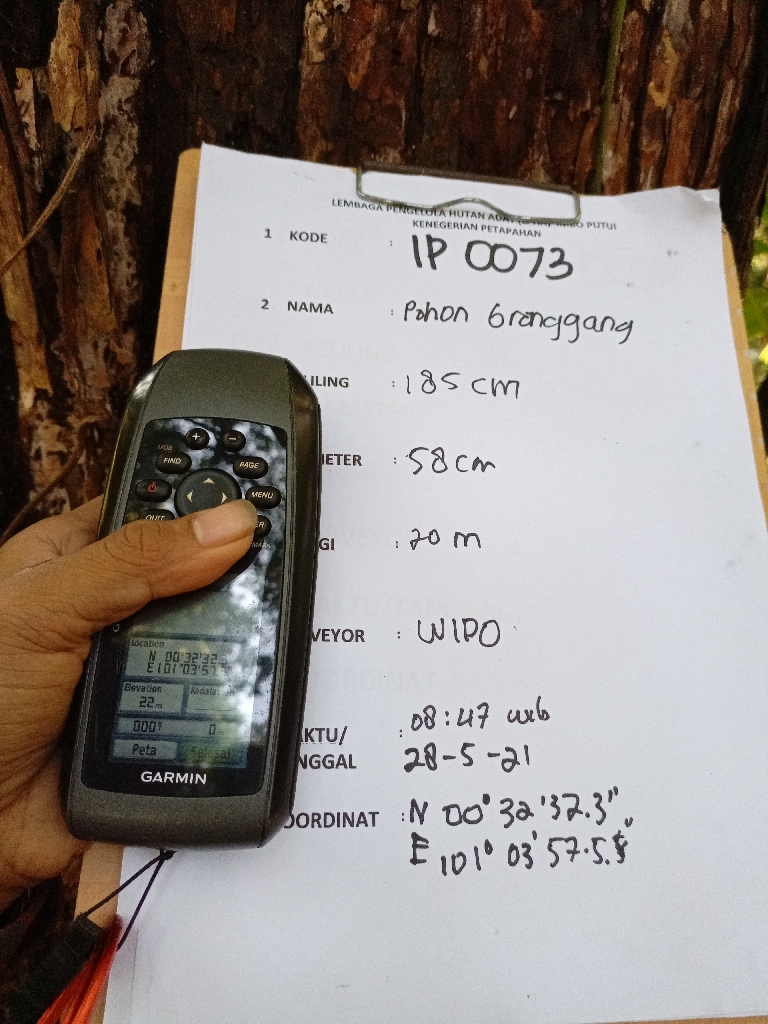 LEMBAGA PENGELOLA HUTAN ADAT PUTUI
KENEGERIAN PETAPAHAN
1 KODE : IP 0073
2 NAMA : Pohon Gronggang
LILING : 185 cm
METER : 58 cm
GI : 20 m
VEYOR : WIDO
AKTU/ : 08:47 wib
NGGAL 28-5-21
OORDINAT : N 00° 32'32.3"
E 101° 03'57.5"
+
-
MOB
FIND
PAGE
MENU
QUIT
ER
MARK
Location
N 00°32'32.
E101°03'57.
Elevation
22m
Kedala
000°
0
Peta
GARMIN